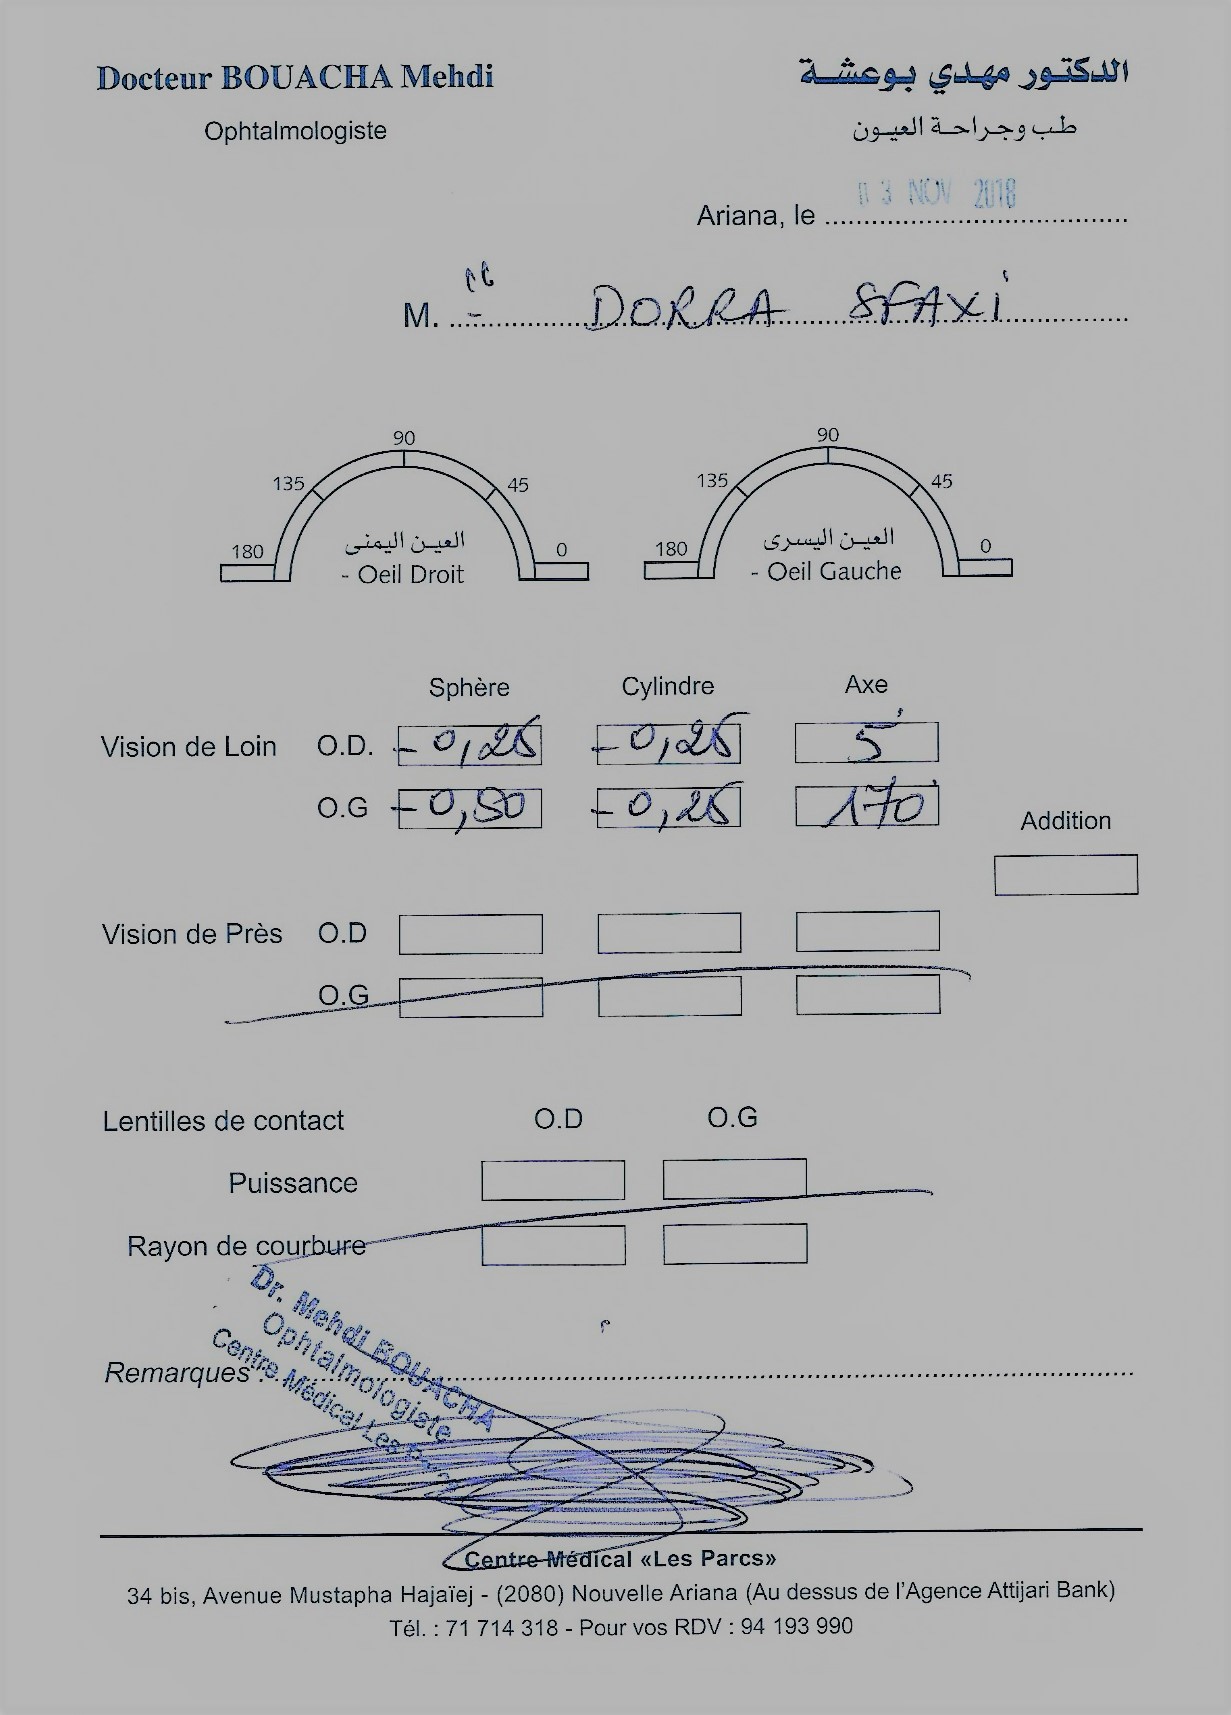 Docteur BOUACHA Mehdi
الدكتور مهدي بوعشة
Ophtalmologiste
طب وجراحة العيون
Ariana, le 03 NOV 2018
M. DORRA SFAXI
90
135
45
180
0
العين اليمنى
- Oeil Droit
90
135
45
180
0
العين اليسرى
- Oeil Gauche
Sphère Cylindre Axe
Vision de Loin O.D. - 0,25 - 0,25 5°
O.G - 0,50 - 0,25 170°
Addition
Vision de Près O.D
O.G
Lentilles de contact O.D O.G
Puissance
Rayon de courbure
Dr. Mehdi BOUACHA
Ophtalmologiste
Centre Médical Les
Remarques :
Centre Médical «Les Parcs»
34 bis, Avenue Mustapha Hajaïej - (2080) Nouvelle Ariana (Au dessus de l'Agence Attijari Bank)
Tél. : 71 714 318 - Pour vos RDV : 94 193 990